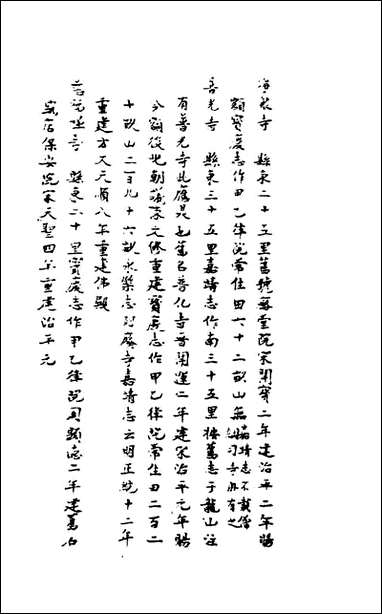 海衆寺　縣東二十五里舊號藥堂院宋開寶二年建治平二年賜
額寶慶志作甲乙律院常住田六十二畝山無嘉靖志不載僧
普光寺　縣東三十五里嘉靖志作南三十五里按舊志于龍山注
有普光寺此應是也舊名普化寺晉開運二年建宋治平元年賜
今額後圮朝議大文修重建寶慶志作甲乙律院常住田二百二
十畝山二百九十六畝永樂志寺嘉靖志云明正統十二年
重建方丈天順八年重建佛殿
寺　縣東六十里寶慶志作甲乙律院周顯德二年建舊名
保安院宋天聖四年重建治平元